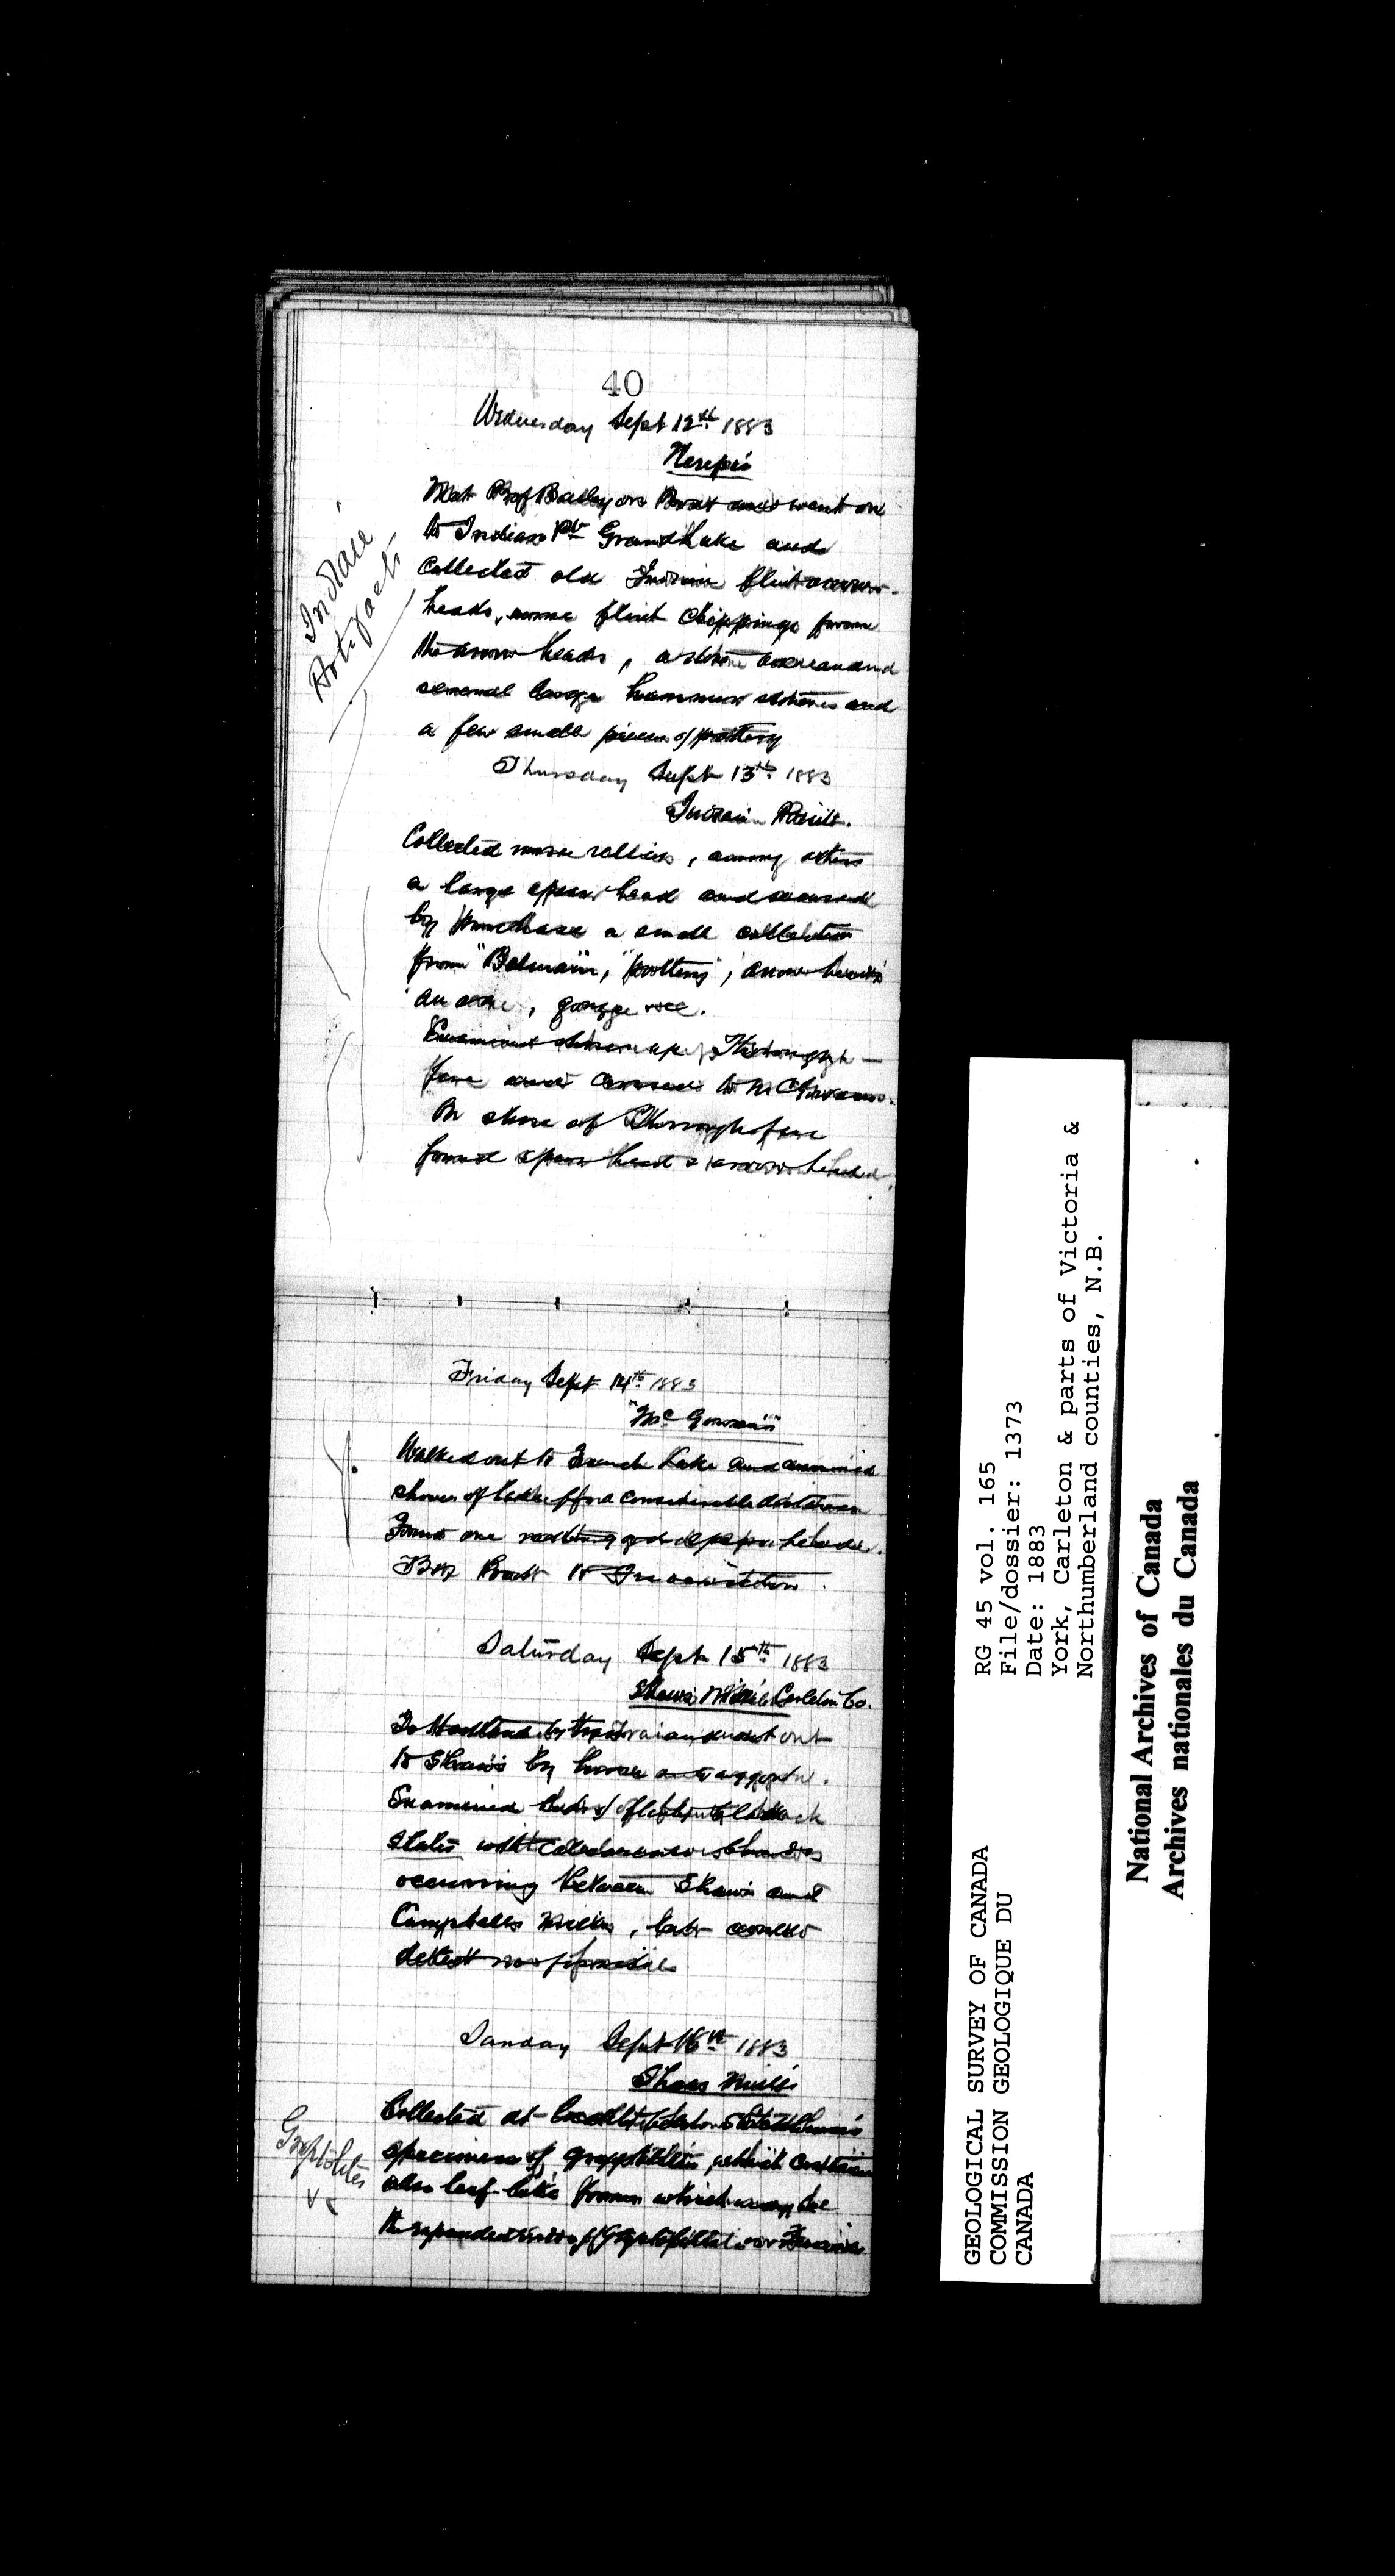 40
Wednesday Sept 12th 1883
Nerepis
Met Prof Bailey on Boat and went on
to Indian Pt Grand Lake and
collected old Indian flint arrow-
heads, some flint chippings from
the arrow heads, a stone axe and
several large hammer stones and
a few small pieces of pottery
Indian
Artifacts
Thursday Sept 13th 1883
Indian Point.
Collected more relics, among others
a large spear head and secured
by purchase a small collection
from "Belmain", "pottery", arrow heads
an axe, gouge &c.
Examined shores of Thorough-
fare and crossed to McGowans.
On shore of Thoroughfare
found spear head & arrow head.
Friday Sept 14th 1883
"McGowan's"
Walked out to French Lake and examined
shores of Lake for a considerable distance
Found one spear head.
By Boat to Fredericton.
Saturday Sept 15th 1883
Shaw's Mills Carleton Co.
To by train and went out
to Shaw's by horse and waggon.
Examined beds of black
slates with
occurring between Shaw's and
Campbells Mills, but could
detect no fossils
Sunday Sept 16th 1883
Shaws Mills
Collected at locality below
specimens of graptolites, which contain
also leaf-like forms which may be
the of Graptolites or
Graptolites
GEOLOGICAL SURVEY OF CANADA
COMMISSION GEOLOGIQUE DU
CANADA
RG 45 vol. 165
File/dossier: 1373
Date: 1883
York, Carleton & parts of Victoria &
Northumberland counties, N.B.
National Archives of Canada
Archives nationales du Canada